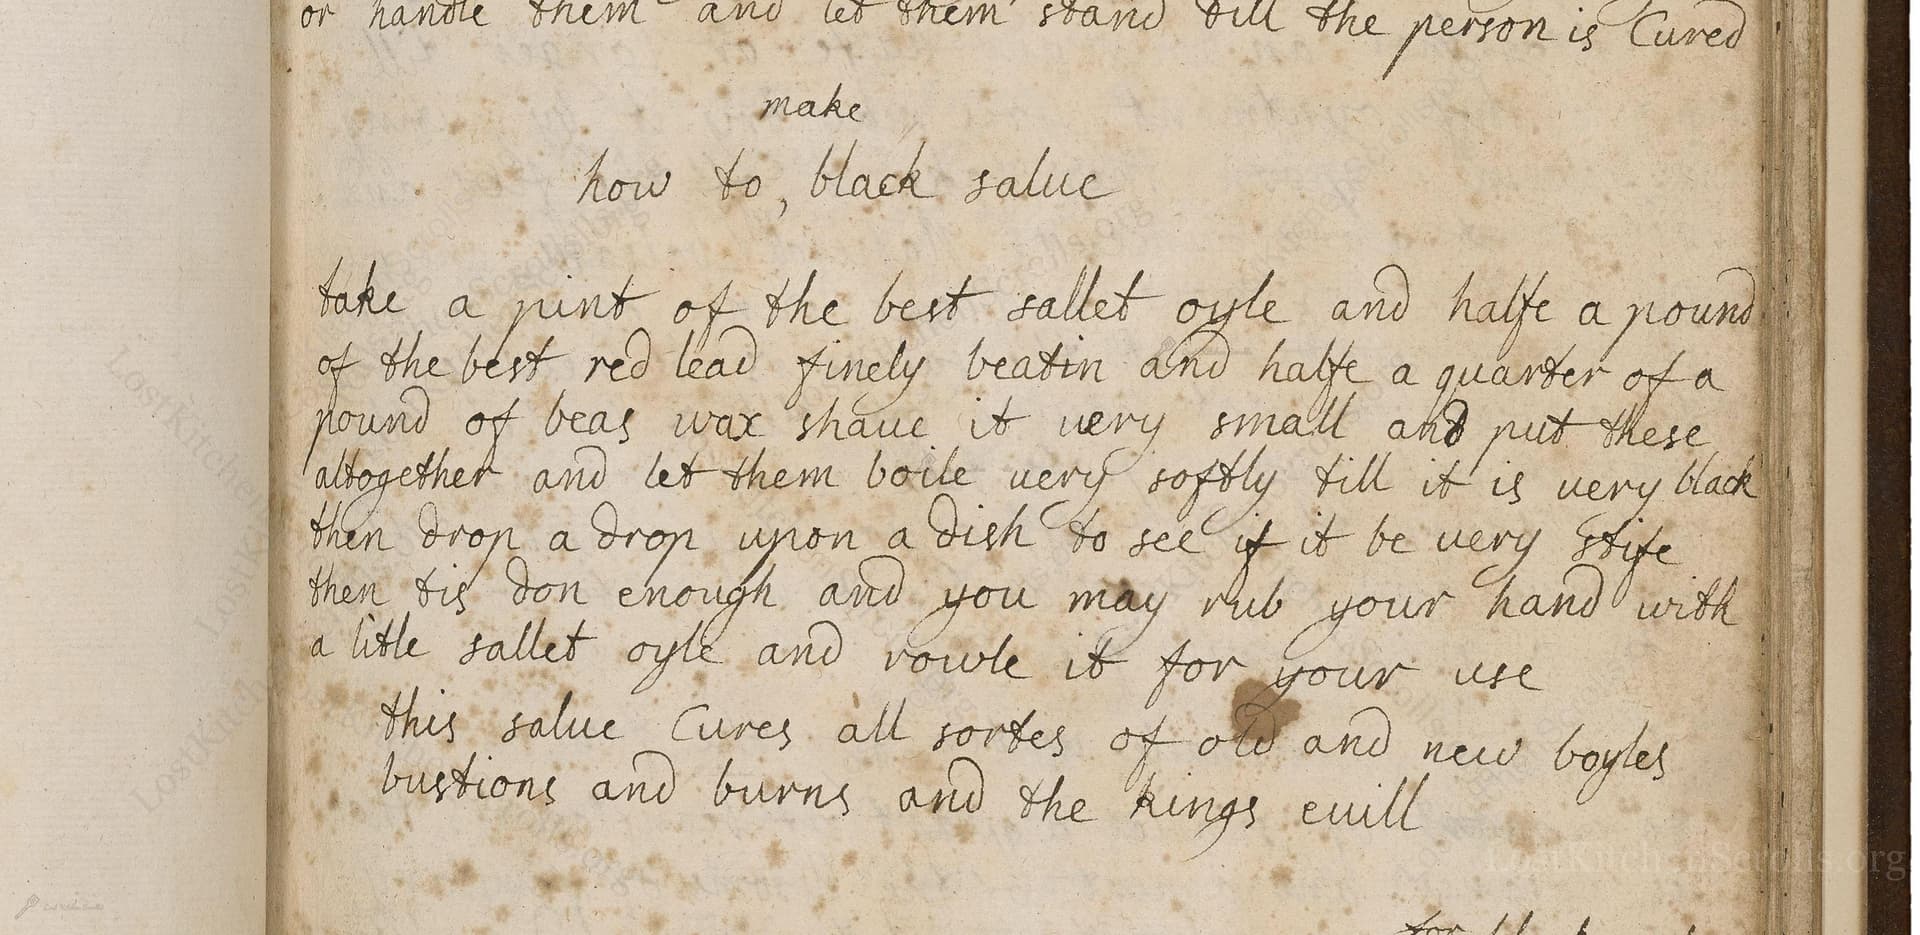 or handle them and let them stand till the person is Cured
make
how to , black salue
take a pint of the best sallet oyle and halfe a pound
of the best red lead finely beatin and halfe a quarter of a
pound of beas wax shaue it uery small and put these
altogether and let them boile uery softly till it is uery black
then drop a drop upon a dish to see if it be uery stife
then tis don enough and you may rub your hand with
a litle sallet oyle and rowle it for your use
this salue Cures all sortes of old and new boyles
bustions and burns and the kings euill
for
LostKitchenScrolls.org